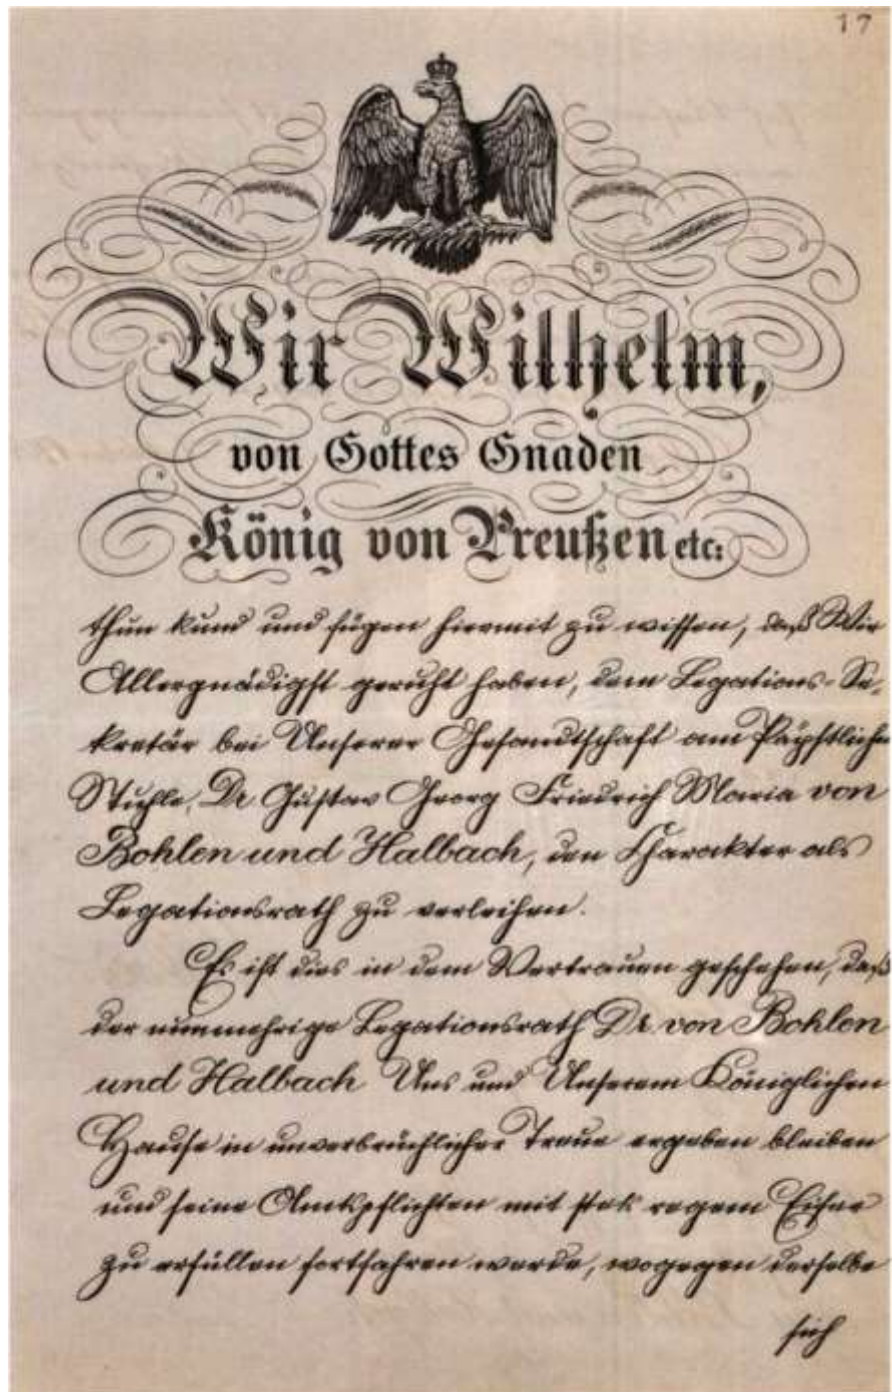 17
Wir Wilhelm,
von Gottes Gnaden
König von Preußen etc:
thun kund und fügen hiermit zu wissen, daß Wir
Allergnädigst geruht haben, dem Legations-Se-
kretär bei Unserer Gesandtschaft am Päpstlichen
Stuhle, Dr. Gustav Georg Friedrich Maria von
Bohlen und Halbach, den Charakter als
Legationsrath zu verleihen.
Es ist dies in dem Vertrauen geschehen, daß
der nunmehrige Legationsrath Dr. von Bohlen
und Halbach Uns und Unserem Königlichen
Hause in unverbrüchlicher Treue ergeben bleiben
und seine Amtspflichten mit stets regem Eifer
zu erfüllen fortfahren werde, wogegen derselbe
sich